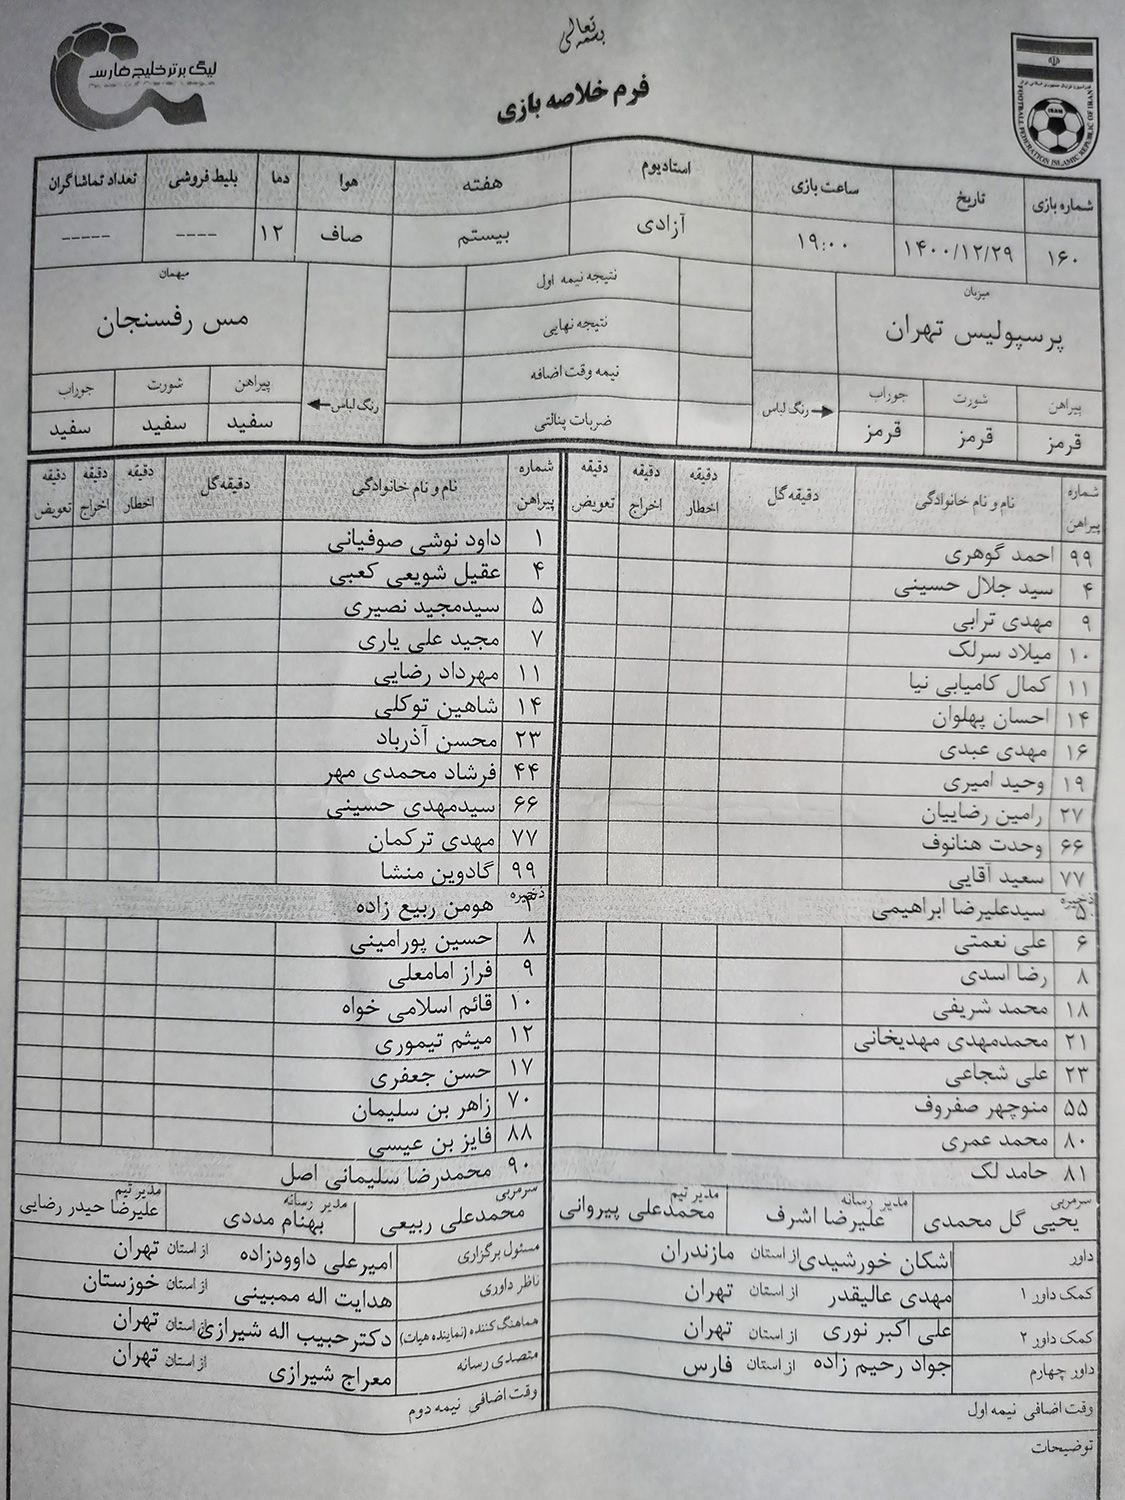 بسمه تعالی
لیگ برتر خلیج فارس
FOOTBALL FEDERATION ISLAMIC REPUBLIC OF IRAN
IRAN
فرم خلاصه بازی
شماره بازی تاریخ ساعت بازی استادیوم هفته هوا دما بلیط فروشی تعداد تماشاگران
۱۶۰ ۱۴۰۰/۱۲/۲۹ ۱۹:۰۰ آزادی بیستم صاف ۱۲ ---- -----
میزبان نتیجه نیمه اول میهمان
پرسپولیس تهران نتیجه نهایی مس رفسنجان
نیمه وقت اضافه
پیراهن شورت جوراب رنگ لباس ضربات پنالتی رنگ لباس پیراهن شورت جوراب
قرمز قرمز قرمز سفید سفید سفید
شماره پیراهن نام و نام خانوادگی دقیقه گل دقیقه اخطار دقیقه اخراج دقیقه تعویض شماره پیراهن نام و نام خانوادگی دقیقه گل دقیقه اخطار دقیقه اخراج دقیقه تعویض
۹۹ احمد گوهری ۱ داود نوشی صوفیانی
۴ سید جلال حسینی ۴ عقیل شویعی کعبی
۹ مهدی ترابی ۵ سیدمجید نصیری
۱۰ میلاد سرلک ۷ مجید علی یاری
۱۱ کمال کامیابی نیا ۱۱ مهرداد رضایی
۱۴ احسان پهلوان ۱۴ شاهین توکلی
۱۶ مهدی عبدی ۲۳ محسن آذرباد
۱۹ وحید امیری ۴۴ فرشاد محمدی مهر
۲۷ رامین رضاییان ۶۶ سیدمهدی حسینی
۶۶ وحدت هنانوف ۷۷ مهدی ترکمان
۷۷ سعید آقایی ۹۹ گادوین منشا
ذخیره ۵ سیدعلیرضا ابراهیمی ذخیره هومن ربیع زاده
۶ علی نعمتی ۸ حسین پورامینی
۸ رضا اسدی ۹ فراز امامعلی
۱۸ محمد شریفی ۱۰ قائم اسلامی خواه
۲۱ محمدمهدی مهدیخانی ۱۲ میثم تیموری
۲۳ علی شجاعی ۱۷ حسن جعفری
۵۵ منوچهر صفروف ۷۰ زاهر بن سلیمان
۸۰ محمد عمری ۸۸ فایز بن عیسی
۸۱ حامد لک ۹۰ محمدرضا سلیمانی اصل
سرمربی مدیر رسانه مدیر تیم سرمربی مدیر رسانه مدیر تیم
یحیی گل محمدی علیرضا اشرف محمدعلی پیروانی محمدعلی ربیعی بهنام مددی علیرضا حیدر رضایی
داور اشکان خورشیدی از استان مازندران مسئول برگزاری امیرعلی داوودزاده از استان تهران
کمک داور ۱ مهدی عالیقدر از استان تهران ناظر داوری هدایت اله ممبینی از استان خوزستان
کمک داور ۲ علی اکبر نوری از استان تهران هماهنگ کننده (نماینده هیات) دکترحبیب اله شیرازی از استان تهران
داور چهارم جواد رحیم زاده از استان فارس متصدی رسانه معراج شیرازی از استان تهران
وقت اضافی نیمه اول وقت اضافی نیمه دوم
توضیحات